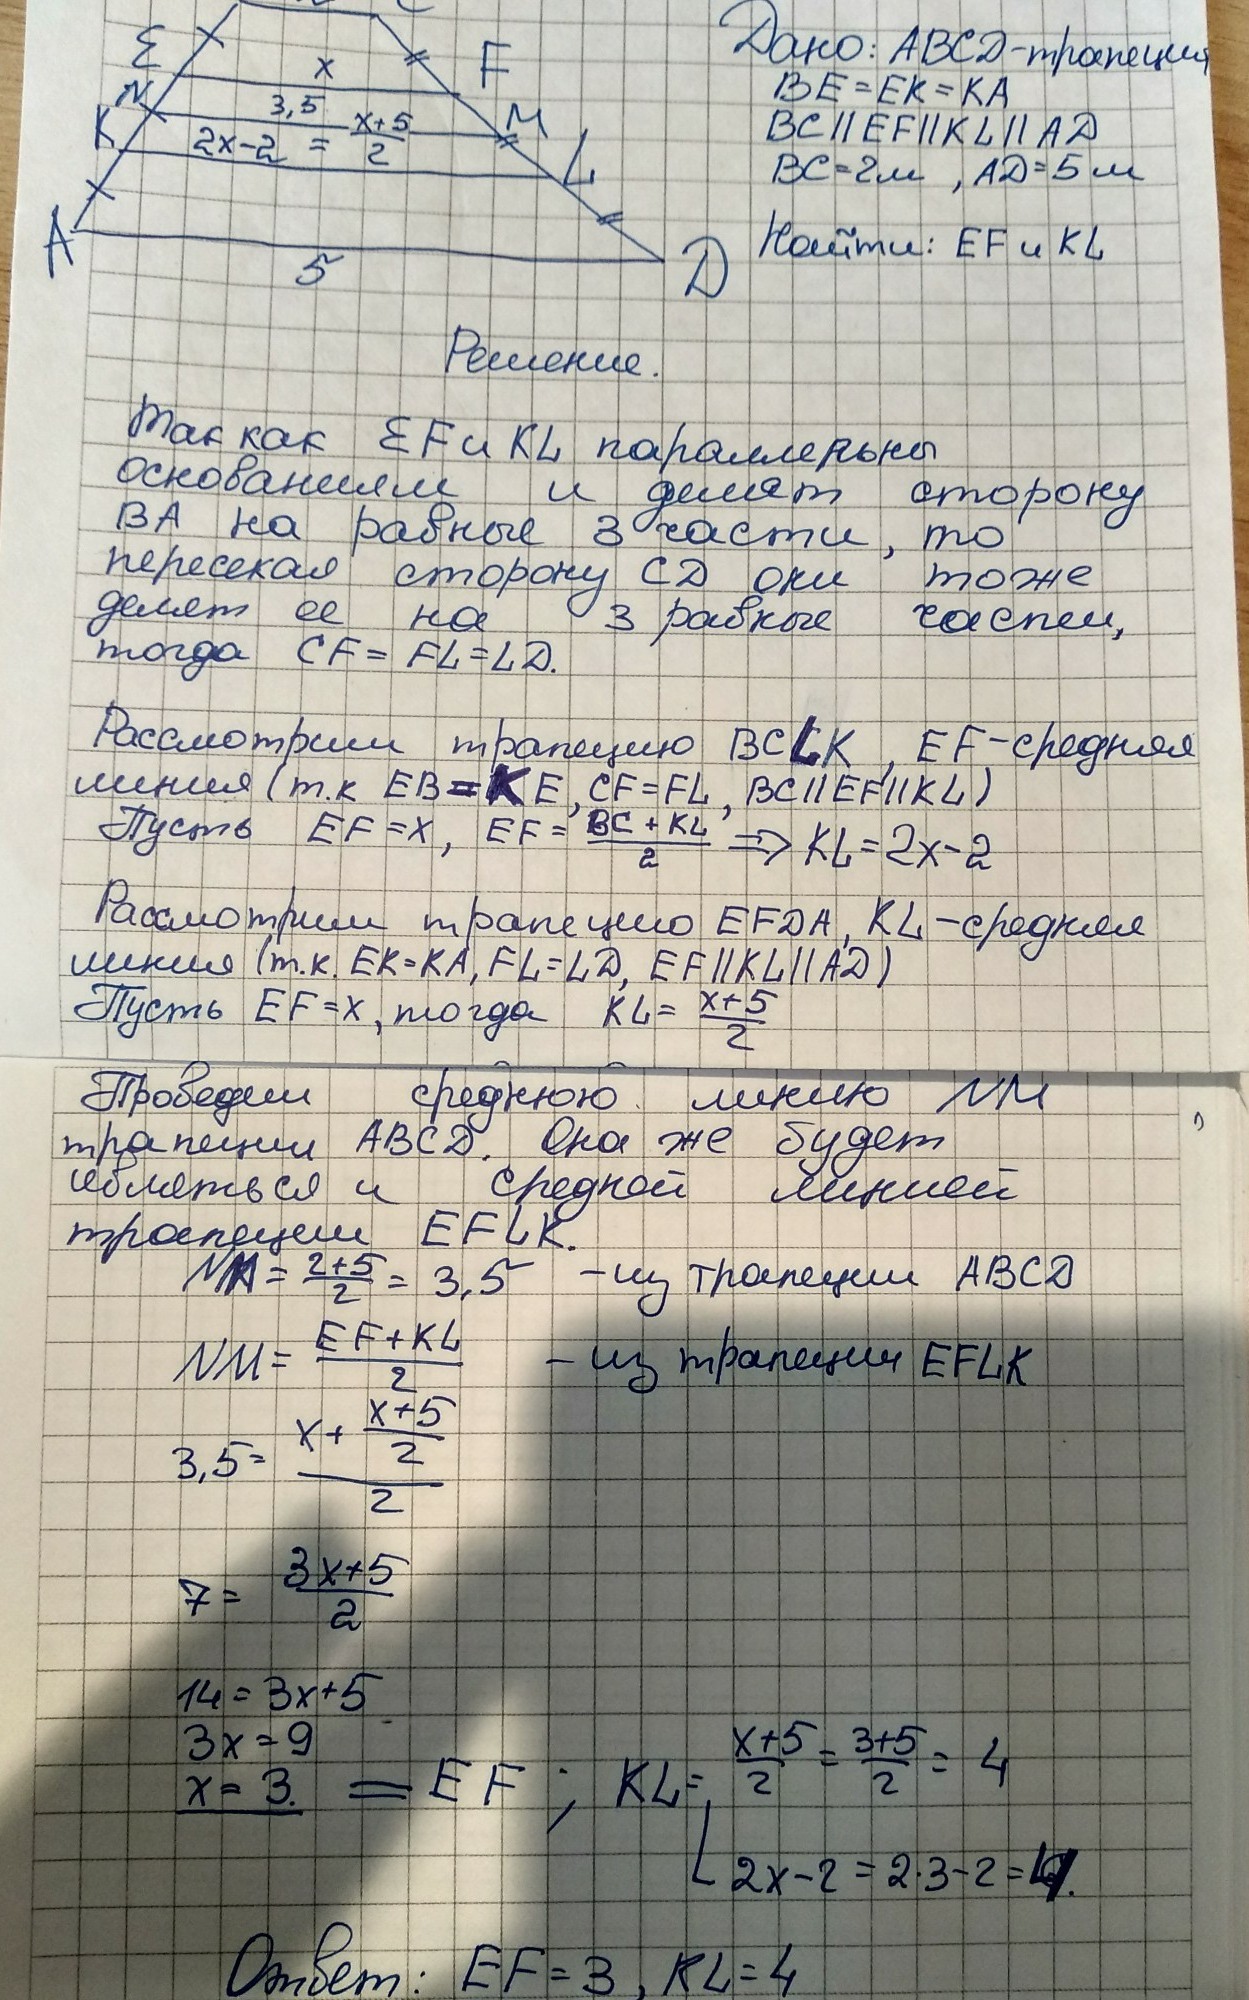 E
x
F
N
3,5
M
K
2x-2 = x+5/2
L
A
5
D
Дано: ABCD-трапеция
BE=EK=KA
BC||EF||KL||AD
BC=2м, AD=5м
Найти: EF и KL
Решение.
Так как EF и KL параллельны
основаниям и делят сторону
BA на равные 3 части, то
пересекая сторону CD они тоже
делят ее на 3 равные части,
тогда CF=FL=LD.
Рассмотрим трапецию BCLK, EF-средняя
линия (т.к EB=KE, CF=FL, BC||EF||KL)
Пусть EF=x, EF=BC+KL/2 => KL=2x-2
Рассмотрим трапецию EFDA, KL-средняя
линия (т.к. EK=KA, FL=LD, EF||KL||AD)
Пусть EF=x, тогда KL=x+5/2
Проведем среднюю линию NM
трапеции ABCD. Она же будет
являться и средней линией
трапеции EFLK.
NM=2+5/2=3,5 -из трапеции ABCD
NM=EF+KL/2 -из трапеции EFLK
3,5=x+x+5/2/2
7=3x+5/2
14=3x+5
3x=9
x=3. = EF; KL=x+5/2=3+5/2=4
2x-2=2·3-2=4.
Ответ: EF=3, KL=4